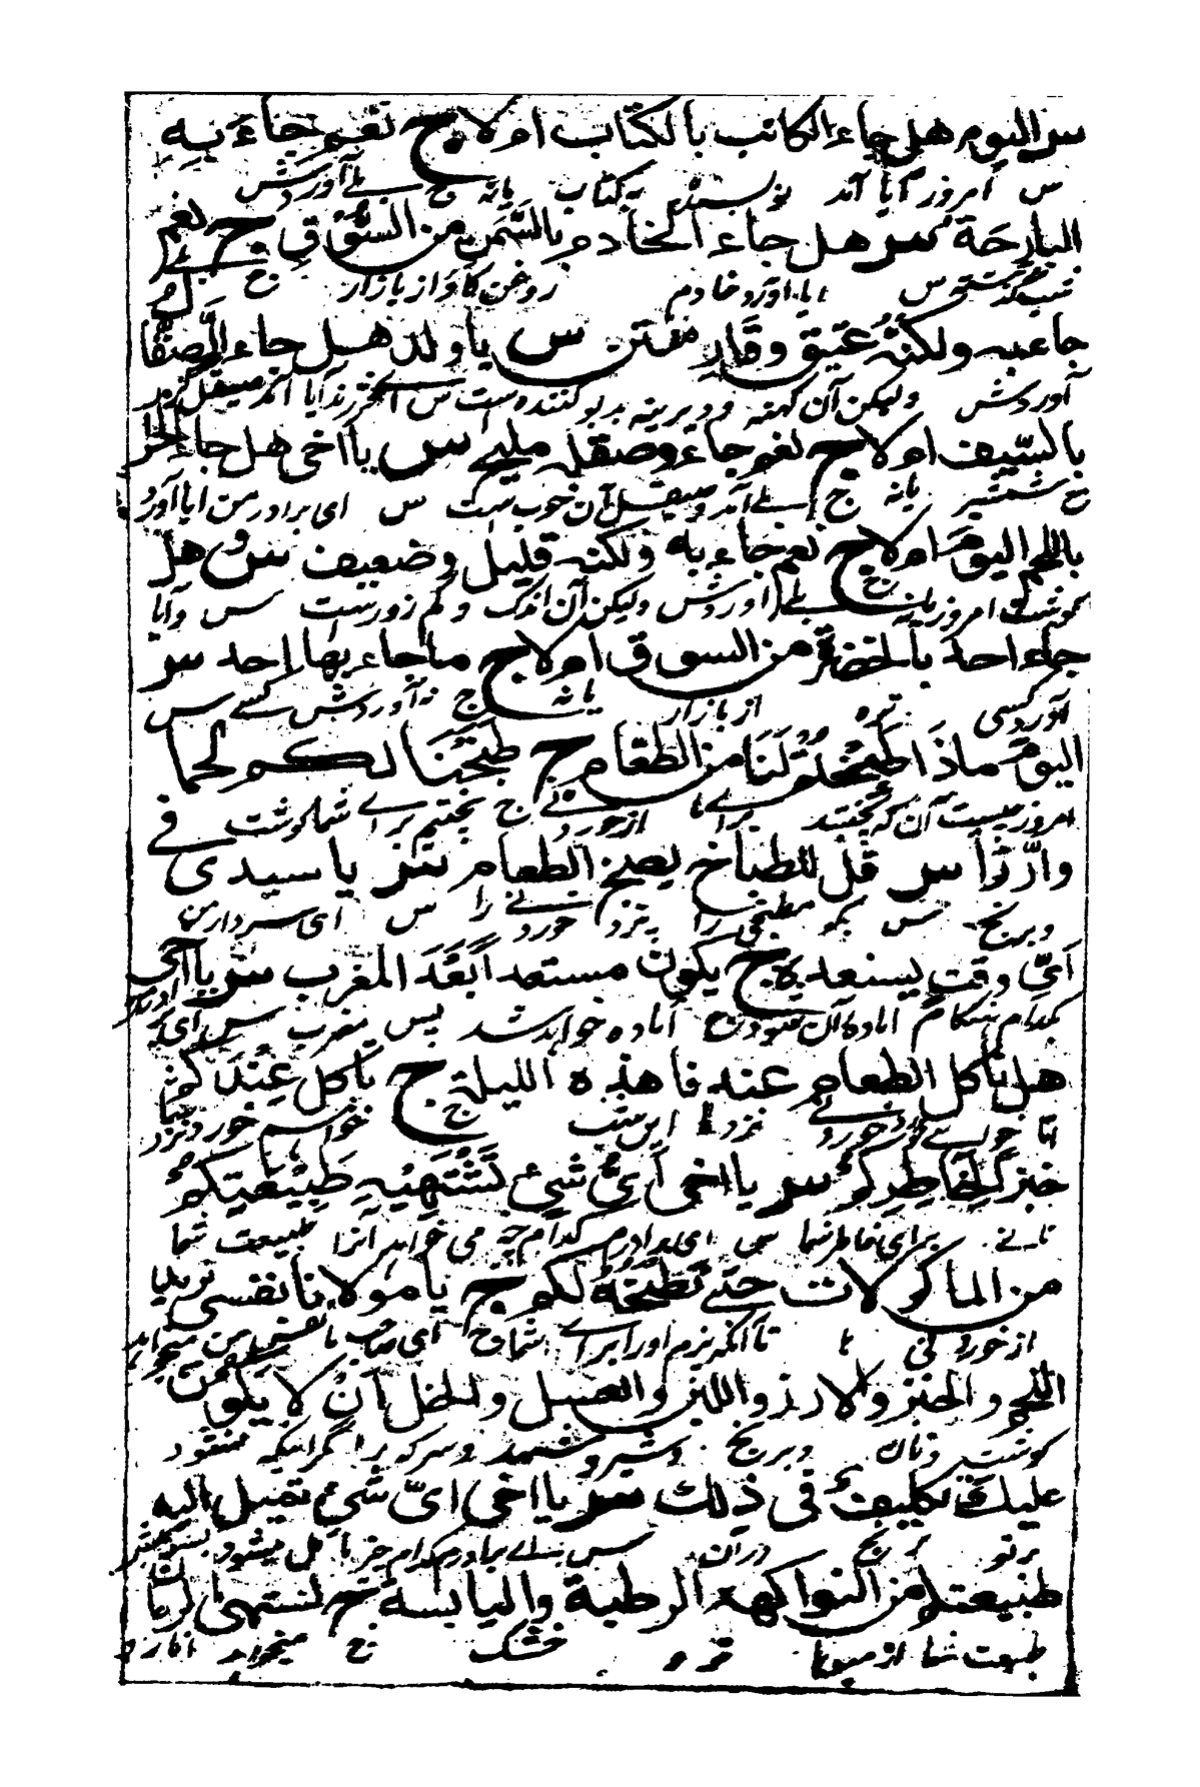 س اليوم هل جاء الكاتب بالكتاب ام لا ج نعم جاء به
س امروز آیا آمد نویسنده به کتاب یا نه ج بلے آوردش
البارحة س هل جاء الخادم بالسَّمن من السُّوق ج نعم
شب گذشته س آیا آورد خادم روغن گاو از بازار ج بلے
جاء به ولكنّه عَتيق وقَارٍ منتن س يا ولد هل جاء الصقال
آوردش ولیکن آن کهنه و دیرینه بدبو کننده است س اے فرزند آیا آمد صیقل گر
بالسّيف ام لا ج نعم جاء وصقله مليح س يا اخى هل جاء
شمشیر یا نه ج بلے آمد و صیقل آن خوب است س ای برادر من آیا آورد
باللحم اليوم ام لا ج نعم جاء به ولكنه قليل وضعيف س وهل
گوشت امروز یا نه ج بلے آوردش ولیکن آن اندک و کم زور است س و آیا
جاء احد بالخضرة من السوق ام لا ج ما جاء بها احد س
آورد کسی تره از بازار یا نه ج نه آوردش کسے س
اليوم ماذا طبختم لنا من الطعام ج طبخنا لكم لحما
امروز چیست آن که پختید برای ما از خوردنے ج پختیم براے شما گوشت
وارُّزا س قل للطباخ يصلح الطعام س يا سيدى فى
و برنج س بگو مطبخی را بپزد خوردنے را س ای سردار من
اىّ وقت يستعد ج يكون مستعد أ بَعْدَ المغرب س يا اخى
کدام هنگام آماده آن شود ج آماده خواهد شد پس مغرب س ای
هل نأكل الطعام عندنا هذه الليلة ج نأكل عِندَكم
آیا خوردنے خورد نزد ما این شب ج خواهیم خورد نزد شما
خبز لخاطركم س يا اخى أىُّ شىء تَشْتَهِيْه طَبِيْعَتِكم
نانے برای خاطر شما س ای برادرم کدام چه می خواهد آنرا طبیعت شما
من الماكولات حتى نَطْبُخَهُ لكم ج يا مولانا نفسى تريد
از خوردنی ها تا آنکه بپزم او را براے شما ج ای صاحب ما نفس من میخواهد
اللحم والخبز والارز واللبن والعسل والخل ان لا يكون
گوشت و نان و برنج و شیر و شهد و سرکه را اگر اینکه
عليك تكليف فى ذلك س يا اخى اىّ شىء تميل اليه
بر تو رنج در آن س اے برادرم کدام چیز مائل میشود بسوی
طبيعتك من الفواكهه الرطبة واليابسة ج تشتهى
طبیعت شما از میوها تر و خشک ج میخواهد